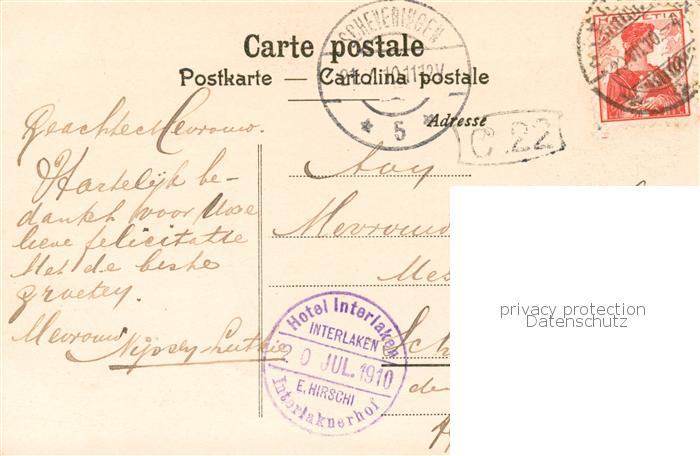 Carte postale
Postkarte — Cartolina postale
SCHEVENINGEN
5
HELVETIA
Adresse
C. 22
Geachte Mevrouw.
Hartelijk be-
dankt voor Uwe
lieve felicitatie
Met de beste
groeten.
Mevrouw
Aan
Mevrouw
privacy protection
Datenschutz
Hotel Interlaken
INTERLAKEN
20 JUL. 1910
E. HIRSCHI
Interlaknerhof
Sch
de